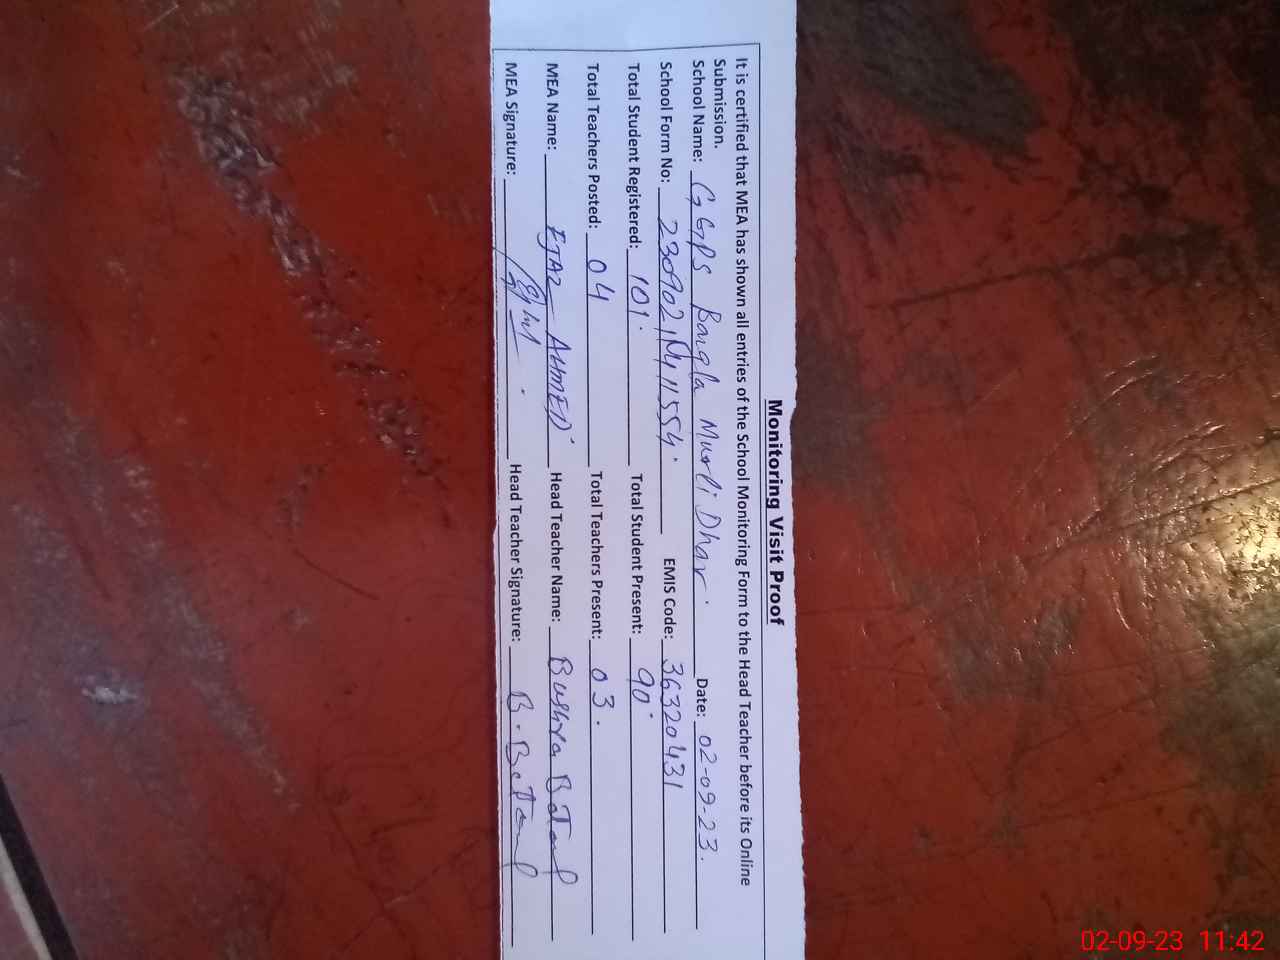 Monitoring Visit Proof
It is certified that MEA has shown all entries of the School Monitoring Form to the Head Teacher before its Online
Submission.
School Name: GGPS Bangla Murli Dhar. Date: 02-09-23.
School Form No: 230902 EMIS Code: 36320431
Total Student Registered: 101. Total Student Present: 90.
Total Teachers Posted: 04 Total Teachers Present: 03.
MEA Name: EJAZ AHMED. Head Teacher Name: Bushra Batool
MEA Signature: Head Teacher Signature: B. Batool
02-09-23 11:42